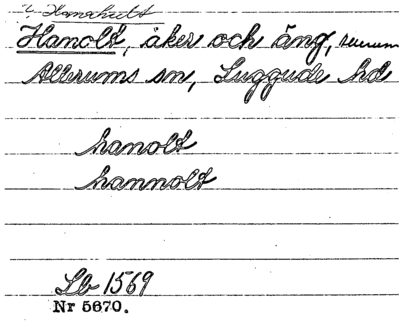 Hanolt, åker och äng,
Allerums sn, Luggude hd
hanolt
hannolt
Lb 1569
Nr 5670.